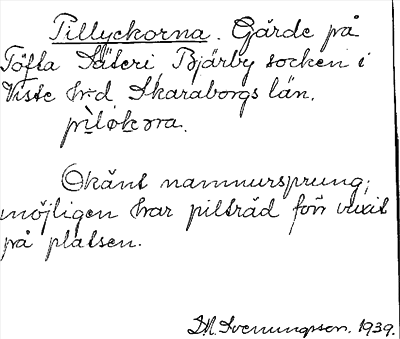 Pillyckorna. Gärde på
Töfta Säteri, Bjärby socken i
Viste hrd Skaraborgs län.
Okänt namnursprung;
möjligen har pilträd förr växit
på platsen.
D.M. Svenungsson. 1939.